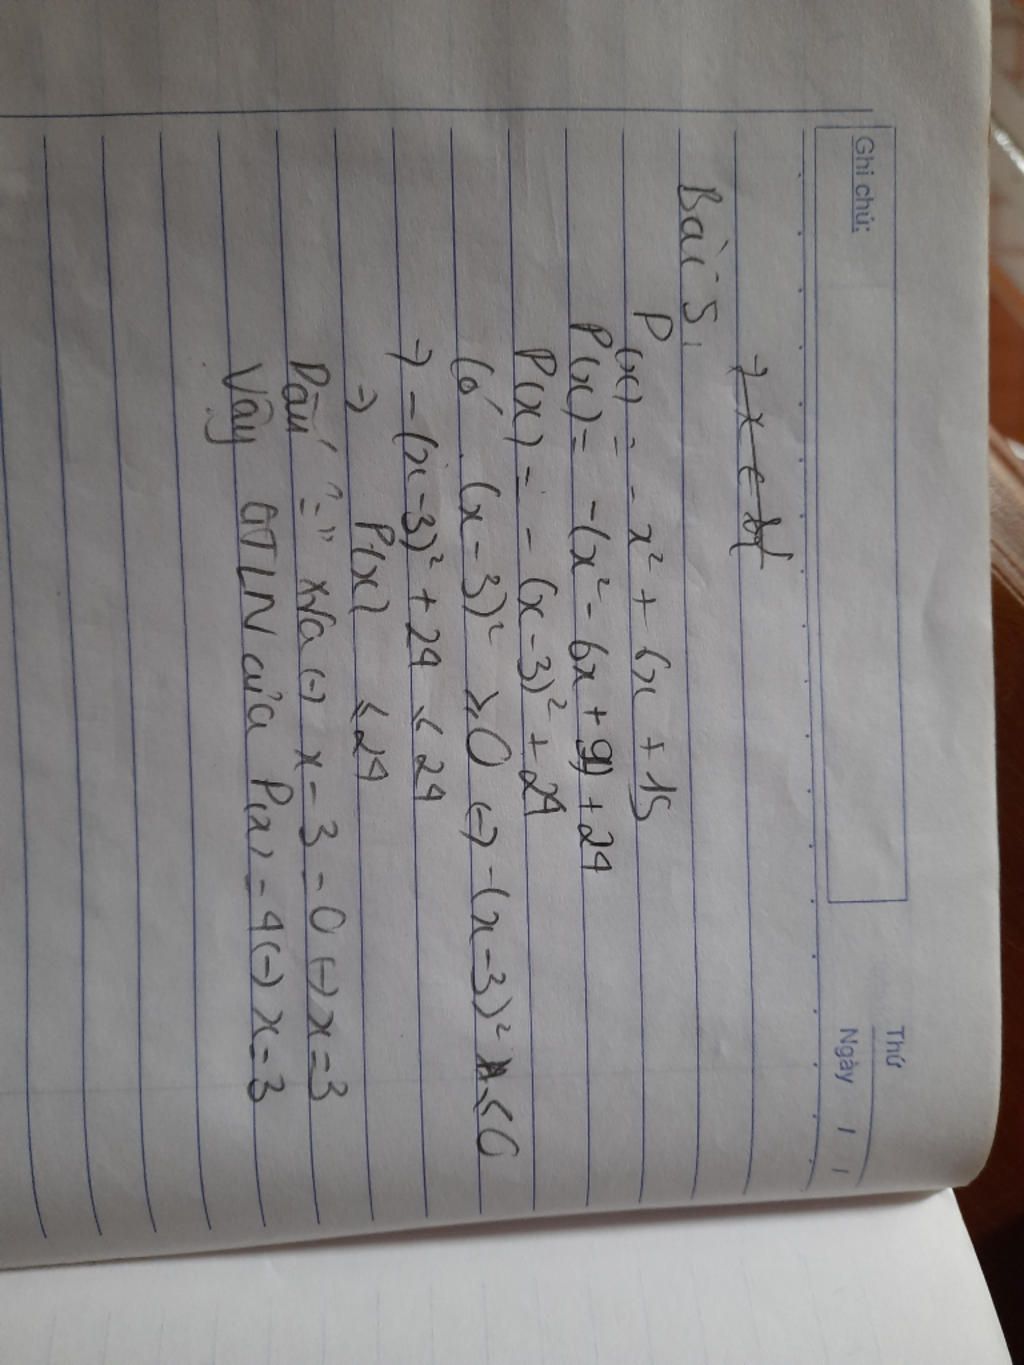 Ghi chú:
Thứ
Ngày / /
Bài 5,
P(x) = - x² + 6x + 15
P(x) = -(x² - 6x + 9) + 24
P(x) = - (x-3)² + 24
Có (x-3)² ≥ 0 (-) -(x-3)² ≤ 0
→ -(x-3)² + 24 ≤ 24
→ P(x) ≤ 24
Dấu "=" xra (-) x-3 = 0 (-) x = 3
Vậy GTLN của P(x) = 4 (-) x = 3